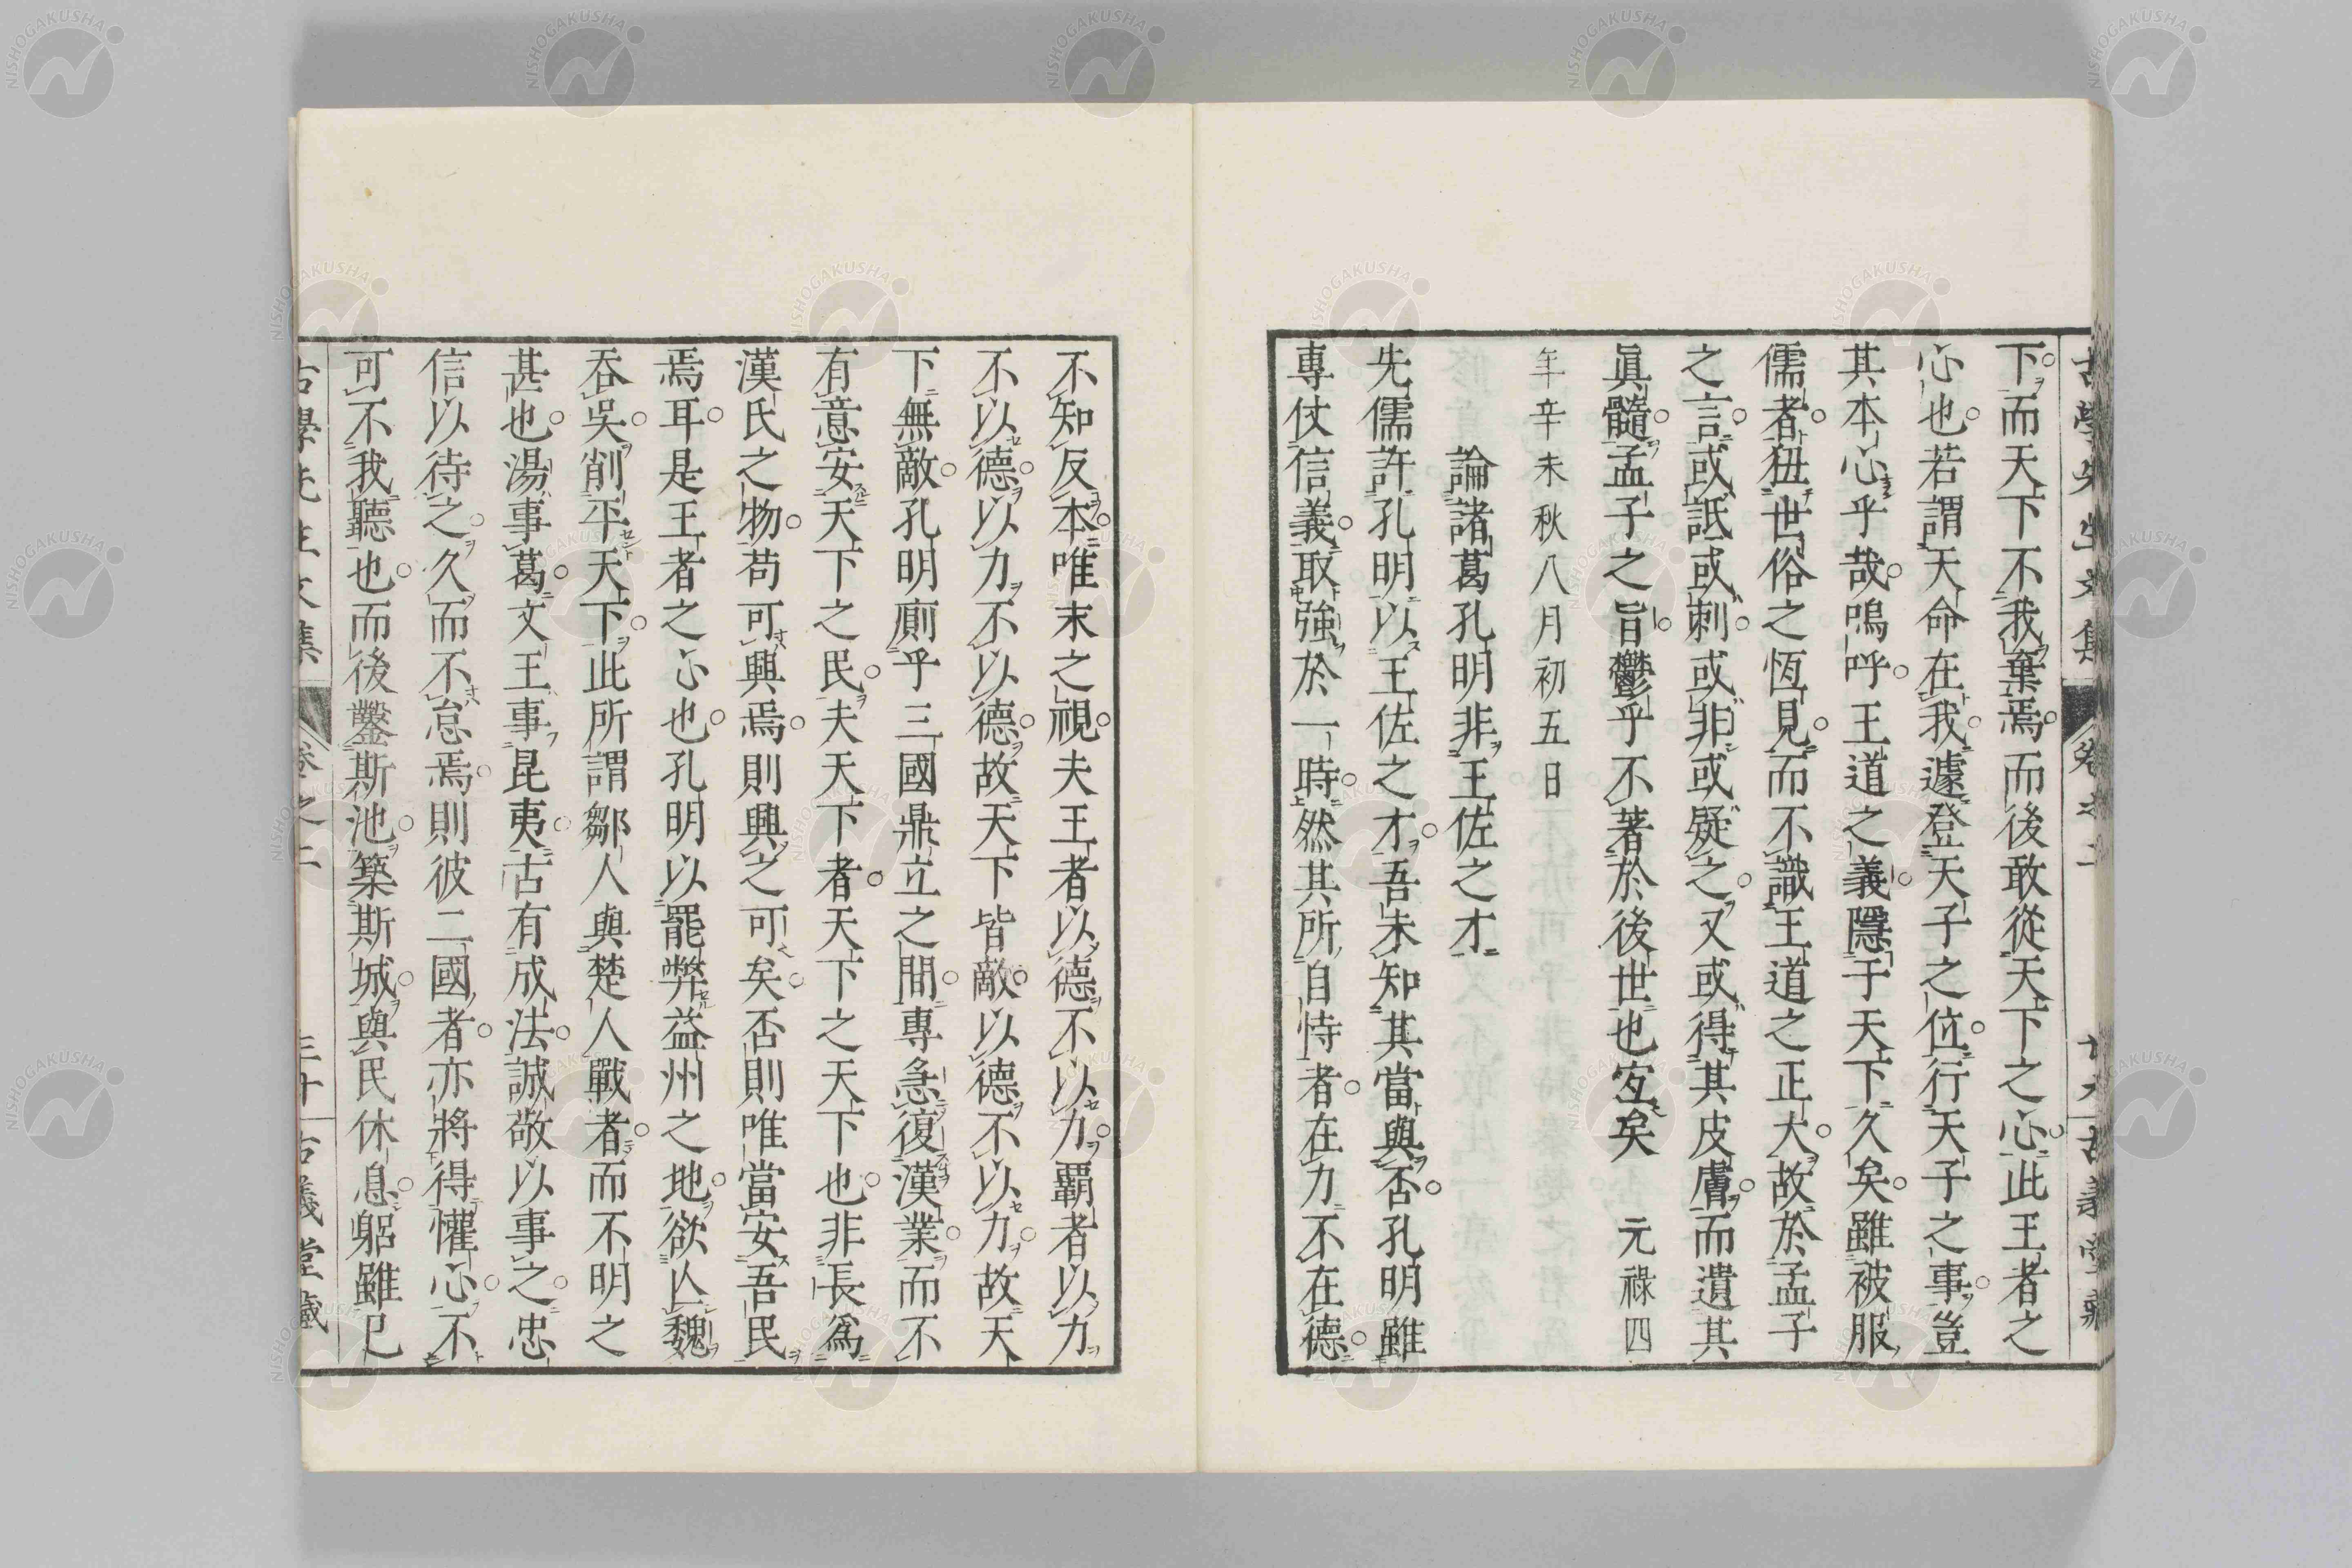 下而天下不我棄焉而後敢從天下之心此王者之
心也若謂天命在我遽登天子之位行天子之事豈
其本心乎哉嗚呼王道之義隱于天下久矣雖被服
儒者狃世俗之恆見而不識王道之正大故於孟子
之言或詆或刺或非或疑之又或得其皮膚而遺其
眞髓孟子之旨鬱乎不著於後世也宜矣　元祿四
年辛未秋八月初五日
論諸葛孔明非王佐之才
先儒許孔明以王佐之才吾未知其當與否孔明雖
專仗信義取強於一時然其所自恃者在力不在德
不知反本唯末之視夫王者以德不以力覇者以力
不以德以力不以德故天下皆敵以德不以力故天
下無敵孔明廁乎三國鼎立之間專急復漢業而不
有意安天下之民夫天下者天下之天下也非長爲
漢氏之物苟可興焉則興之可矣否則唯當安吾民
焉耳是王者之心也孔明以罷弊益州之地欲亾魏
吞吳削平天下此所謂鄒人與楚人戰者而不明之
甚也湯事葛文王事昆夷古有成法誠敬以事之忠
信以待之久而不怠焉則彼二國者亦將得懽心不
可不我聽也而後鑿斯池築斯城與民休息躬雖已
古學先生文集　卷之二　三十　古義堂藏